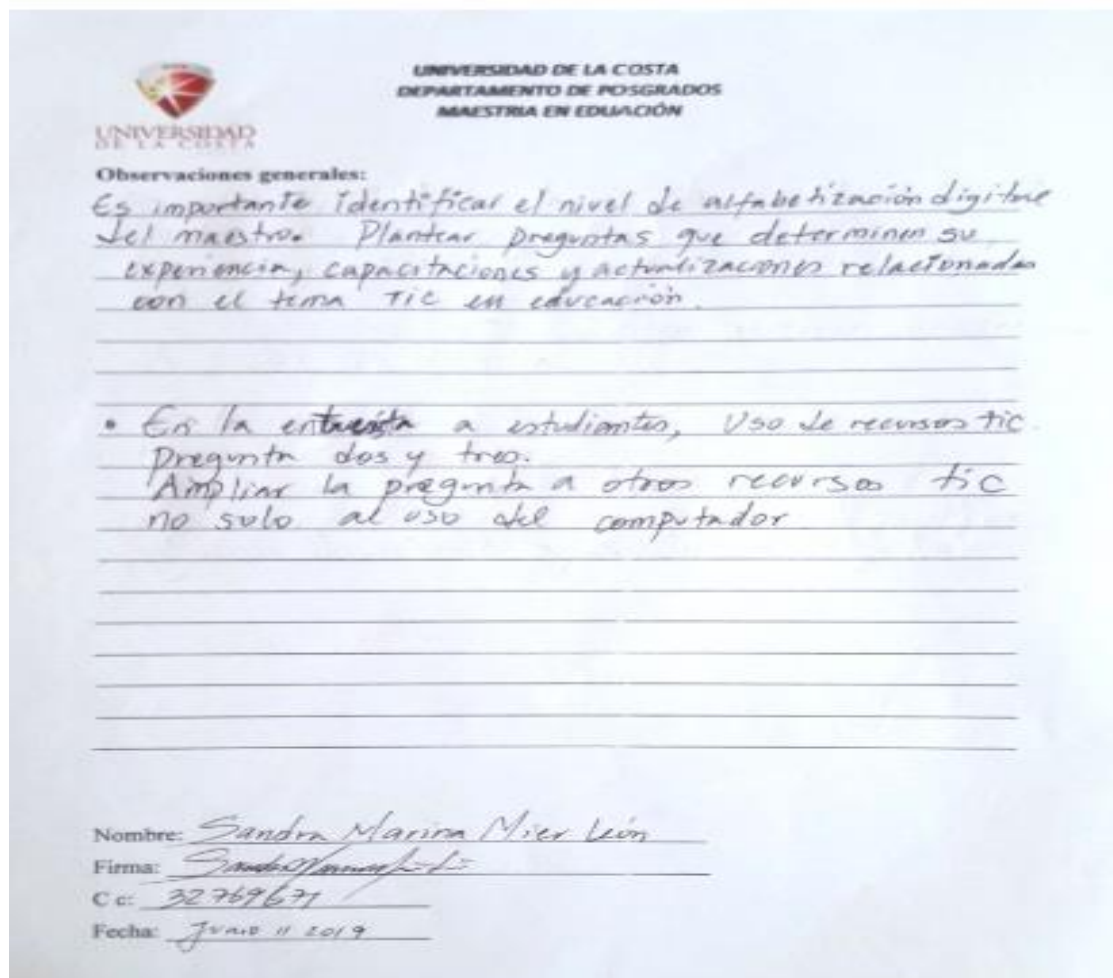 UNIVERSIDAD DE LA COSTA
DEPARTAMENTO DE POSGRADOS
MAESTRIA EN EDUACIÓN
UNIVERSIDAD
DE LA COSTA
Observaciones generales:
Es importante identificar el nivel de alfabetización digital
del maestro. Plantear preguntas que determinen su
experiencia, capacitaciones y actualizaciones relacionadas
con el tema TIC en educación.
• En la entrevista a estudiantes, Uso de recursos tic.
Pregunta dos y tres.
Ampliar la pregunta a otros recursos tic
no solo al uso del computador
Nombre: Sandra Marina Mier León
Firma:
C c: 32769671
Fecha: Junio 11 2019